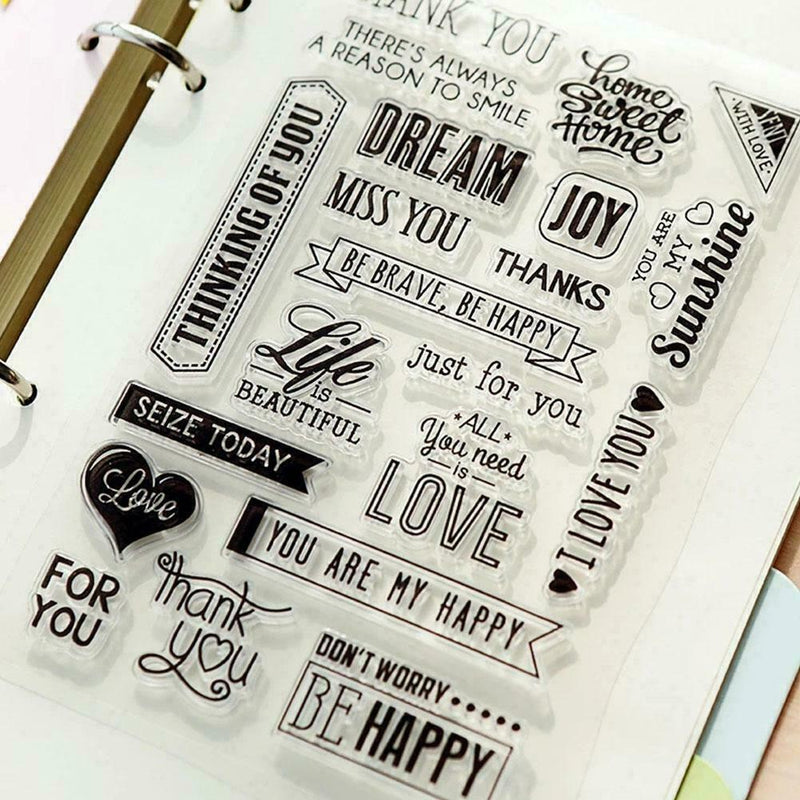 THANK YOU
THERE'S ALWAYS
A REASON TO SMILE
home
Sweet
Home
SENT
WITH LOVE
THINKING OF YOU
DREAM
JOY
MISS YOU
THANKS
YOU ARE
MY
Sunshine
BE BRAVE, BE HAPPY
Life
is
BEAUTIFUL
just for you
SEIZE TODAY
*ALL*
You need
is
LOVE
I LOVE YOU
Love
YOU ARE MY HAPPY
FOR
YOU
thank
you
DON'T WORRY......
BE HAPPY